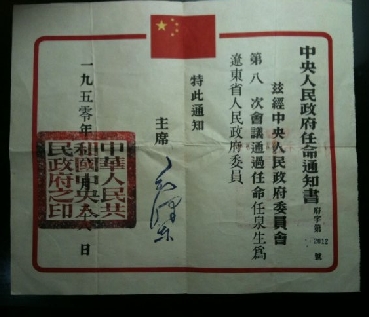 中央人民政府任命通知書
府字第2012號
茲經中央人民政府委員會
第八次會議通過任命任泉生為
遼東省人民政府委員
特此通知
主席
毛澤东
一九五零年 月 日
中華人民共
和國中央人
民政府之印